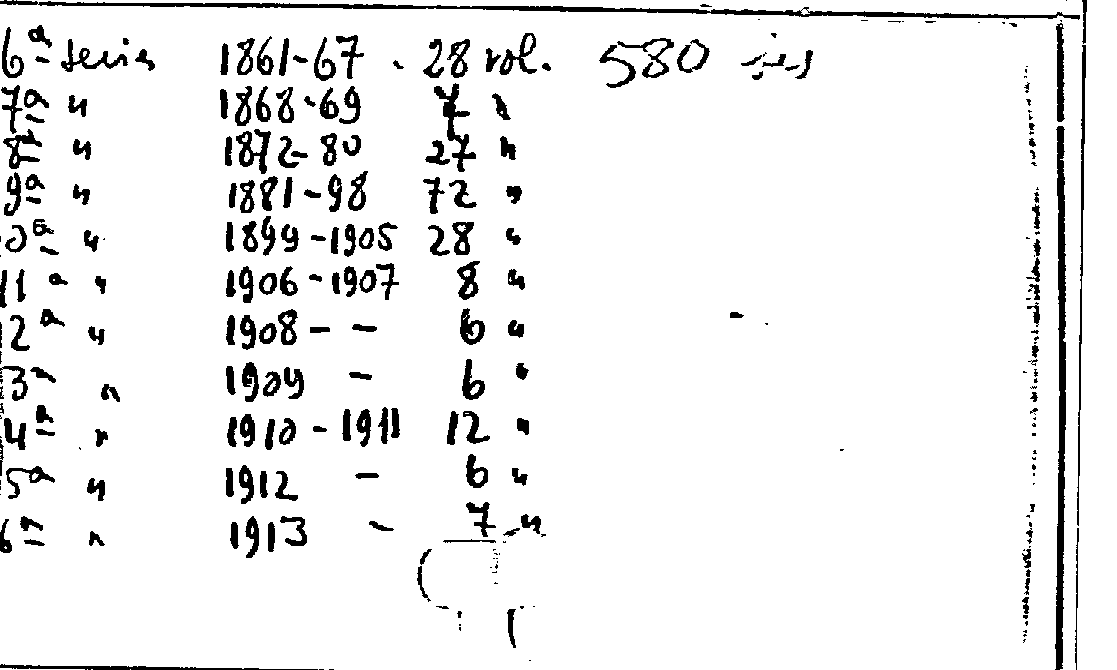 6ª series 1861-67 . 28 vol. 580
7ª " 1868-69 7 "
8ª " 1872-80 27 "
9ª " 1881-98 72 "
0ª " 1899-1905 28 "
11ª " 1906-1907 8 "
2ª " 1908 - - 6 "
3ª " 1909 - 6 "
4ª " 1910-1911 12 "
5ª " 1912 - 6 "
6ª " 1913 - 7 "